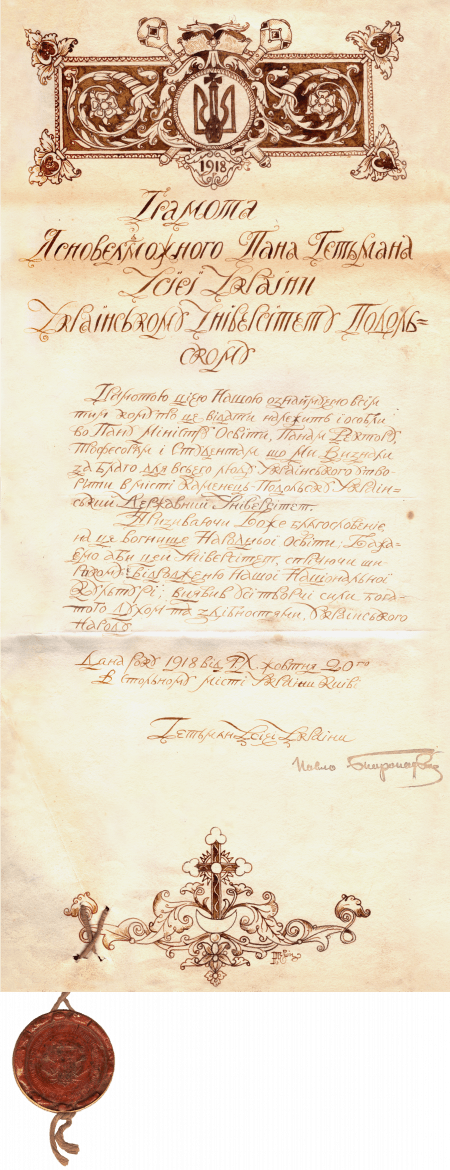 1918
Грамота
Ясновелможного Пана Гетьмана
Усієї України
Українському Університету Подоль=
ському
Грамотою цією Нашою ознаймуємо всім
тим кому то це відати належить і особли-
во Пану Міністру Освіти, Панам Ректору,
Професорам і Студентам що ми Визнали
за Благо для всього люду Українського ство-
рити в місті Каменець-Подольску Україн=
ський Державний Університет.
Призиваючи Боже благословеніє
на це вогнище Народньої Освіти; Бажа-
ємо аби цей Університет, стуючи ши-
відродженю Нашої Національної
Культурі; виявив Усі творчі сили бога-
того Духом та здібностями, Українського
Народу
Дана Року 1918 від Р.Х. жовтня 20го
В стольному місті України Київі
Гетьман Усієї України
Павло Скоропадський